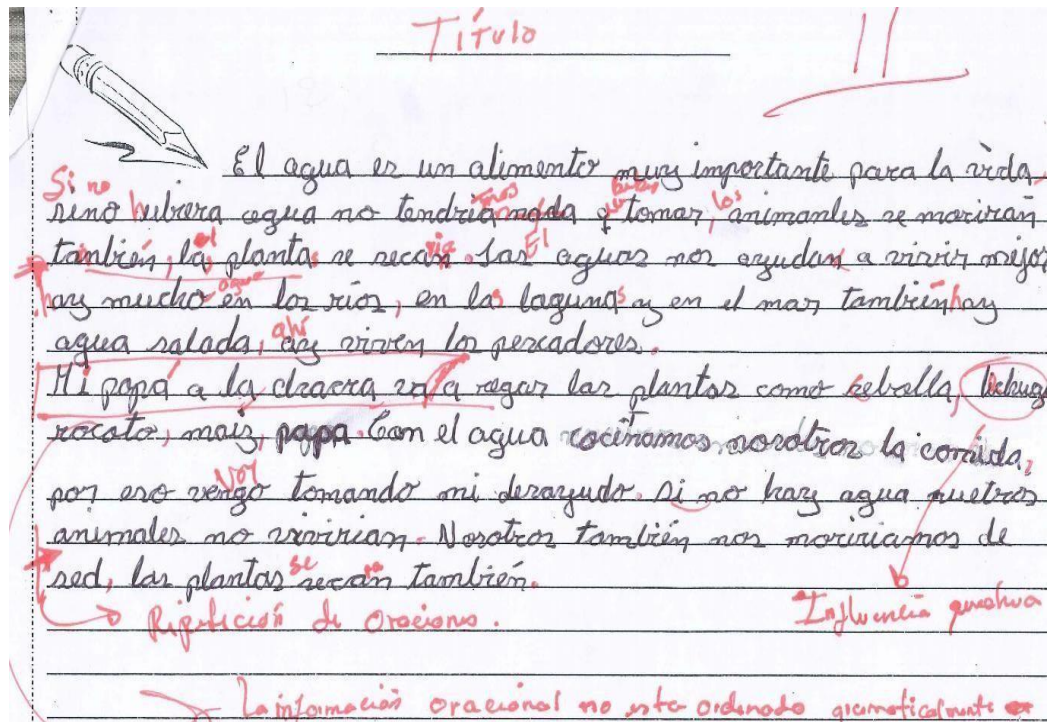 Título
11
El agua es un alimento muy importante para la vida
Si no
sino hubiera agua no tendria nada q tomar, los animales se morirán
también, la plantas se secan. Las El aguas nos ayudan a vivir mejor
hay mucho agua en los ríos, en las lagunas y en el mar también hay
agua salada, ahí ay viven los pescadores.
Mi papá a la chacra va a regar las plantas como sebolla, lichuga
rocoto, maiz, papa. Con el agua cocinamos nosotros la comida,
por eso vengo tomando mi desayudo. Si no hay agua nuetros
animales no vivirian. Nosotros también nos moririamos de
sed, las plantas se secan también.
Ripetición de oraciones.
Influencia quechua
La información oracional no esta ordenado gramaticalmente